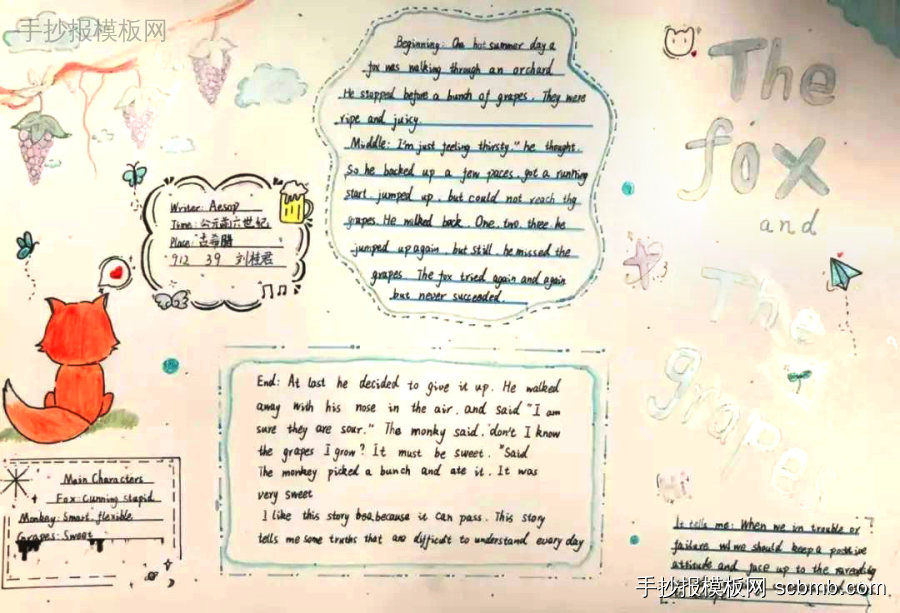 手抄报模板网
The
fox
and
The
grape
Beginning: One hot summer day a
fox was walking through an orchard
He stopped before a bunch of grapes. They were
ripe and juicy.
Middle: I'm just feeling thirsty." he thought.
So he backed up a few paces. got a running
start. jumped up. but could not reach the
grapes. He walked back. One. two. three. he
jumped up again. but still. he missed the
grapes. The fox tried again and again
but never succeeded.
Writer: Aesop
Time: 公元前六世纪
Place: 古希腊
912 39 刘桂君
End: At last he decided to give it up. He walked
away with his nose in the air. and said "I am
sure they are sour." The monky said. "don't I know
the grapes I grow? It must be sweet. "Said
The monkey picked a bunch and ate it. It was
very sweet
I like this story because it can pass. This story
tells me some truths that are difficult to understand every day
Main Characters
Fox: Cunning stupid
Monkey: Smart flexible
Grapes: Sweet
Hi
It tells me: When we in trouble or
failure. we should keep a positive
attitude and face up to the
手抄报模板网 scbmb.com